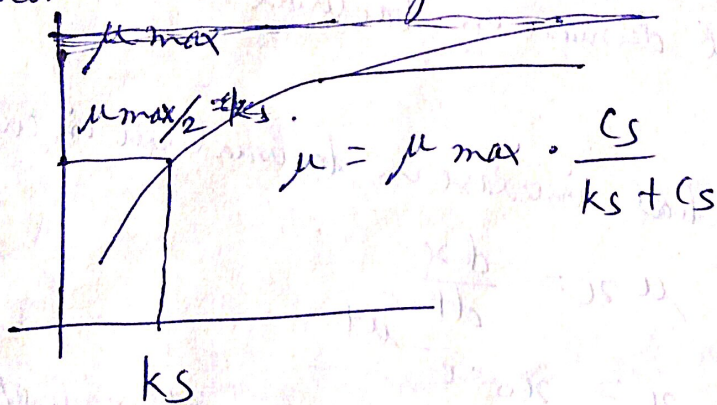 μ max
μ max/2
μ = μ max · Cs / ks + Cs
ks